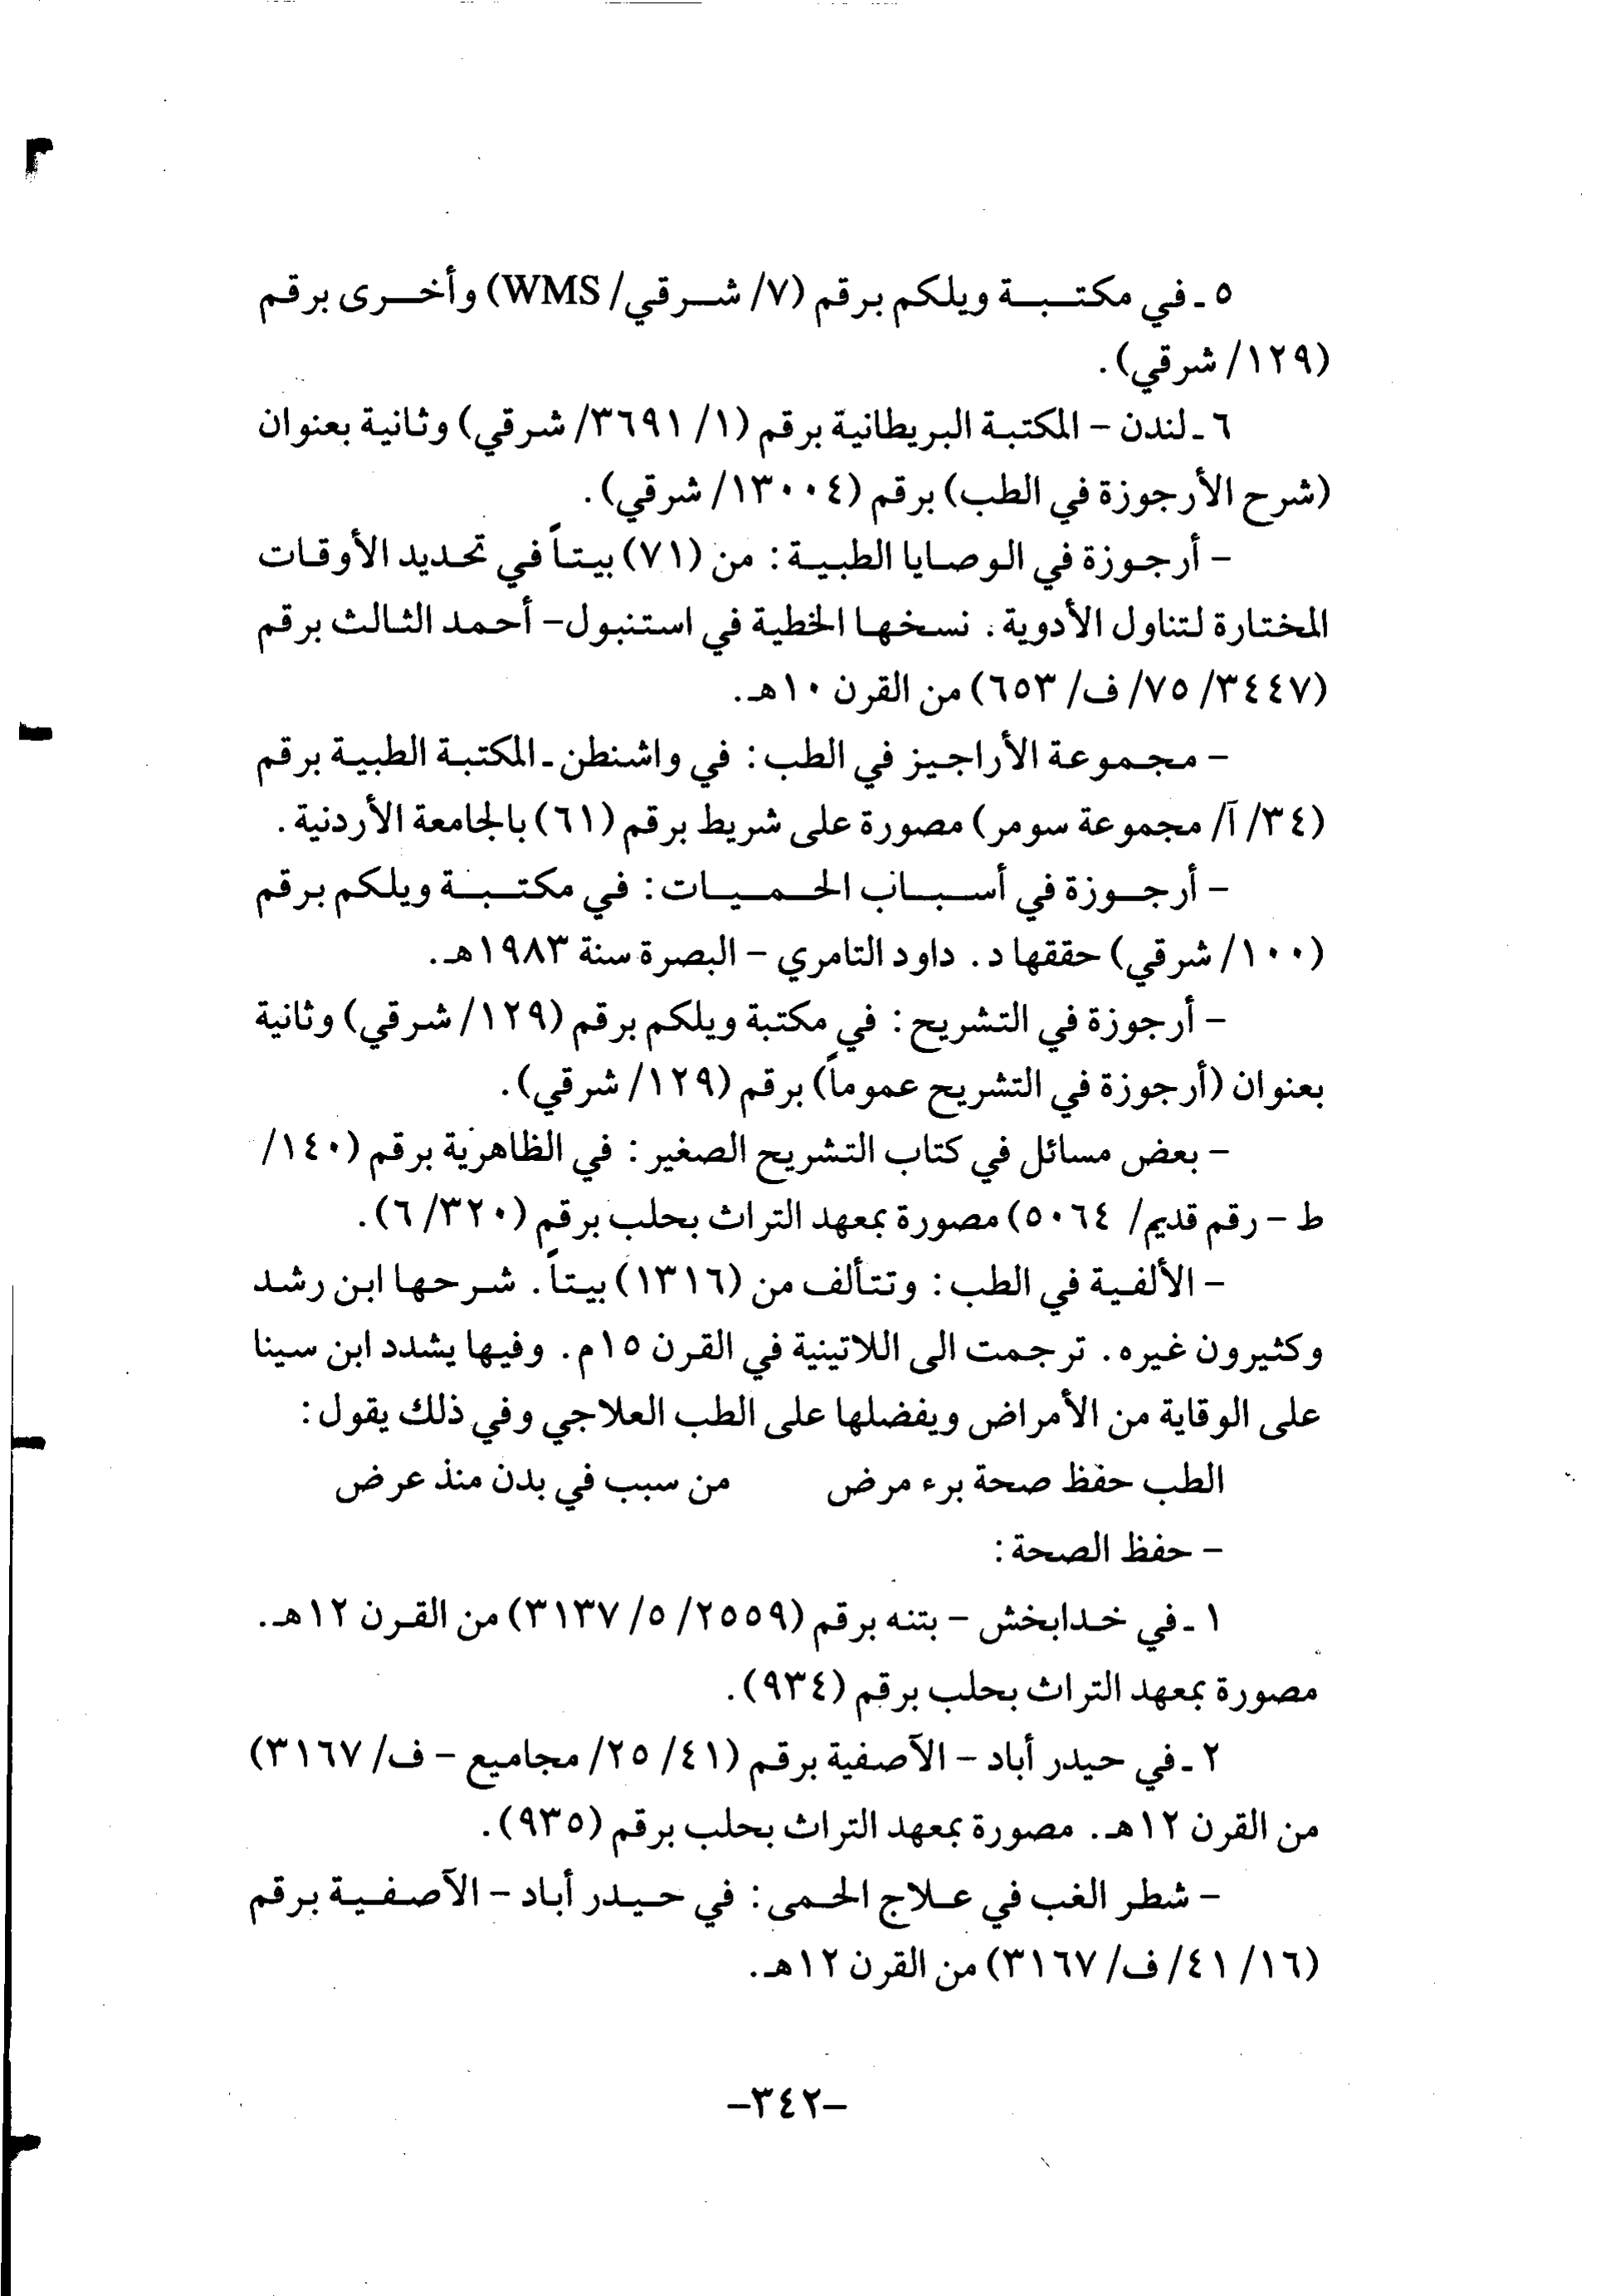 ٥ ـ في مكتبة ويلكم برقم (٧/ شرقي/ WMS) وأخرى برقم
(١٢٩/ شرقي).
٦ ـ لندن – المكتبة البريطانية برقم (١/ ٣٦٩١/ شرقي) وثانية بعنوان
(شرح الأرجوزة في الطب) برقم (١٣٠٠٤/ شرقي).
– أرجوزة في الوصايا الطبية: من (٧١) بيتاً في تحديد الأوقات
المختارة لتناول الأدوية. نسخها الخطية في استنبول– أحمد الثالث برقم
(٣٤٤٧/ ٧٥/ ف/ ٦٥٣) من القرن ١٠هـ.
– مجموعة الأراجيز في الطب: في واشنطن ـ المكتبة الطبية برقم
(٣٤/ آ/ مجموعة سومر) مصورة على شريط برقم (٦١) بالجامعة الأردنية.
– أرجوزة في أسباب الحميات: في مكتبة ويلكم برقم
(١٠٠/ شرقي) حققها د. داود الثامري – البصرة سنة ١٩٨٣هـ.
– أرجوزة في التشريح: في مكتبة ويلكم برقم (١٢٩/ شرقي) وثانية
بعنوان (أرجوزة في التشريح عموماً) برقم (١٢٩/ شرقي).
– بعض مسائل في كتاب التشريح الصغير: في الظاهرية برقم (١٤٠/
ط – رقم قديم/ ٥٠٦٤) مصورة بمعهد التراث بحلب برقم (٣٢٠/ ٦).
– الألفية في الطب: وتتألف من (١٣١٦) بيتاً. شرحها ابن رشد
وكثيرون غيره. ترجمت الى اللاتينية في القرن ١٥م. وفيها يشدد ابن سينا
على الوقاية من الأمراض ويفضلها على الطب العلاجي وفي ذلك يقول:
الطب حفظ صحة برء مرض من سبب في بدن منذ عرض
– حفظ الصحة:
١ ـ في خدابخش – بتنه برقم (٢٥٥٩/ ٥/ ٣١٣٧) من القرن ١٢هـ.
مصورة بمعهد التراث بحلب برقم (٩٣٤).
٢ ـ في حيدر أباد – الآصفية برقم (٤١/ ٢٥/ مجاميع – ف/ ٣١٦٧)
من القرن ١٢هـ. مصورة بمعهد التراث بحلب برقم (٩٣٥).
– شطر الغب في علاج الحمى: في حيدر أباد – الآصفية برقم
(١٦/ ٤١/ ف/ ٣١٦٧) من القرن ١٢هـ.
–٣٤٢–